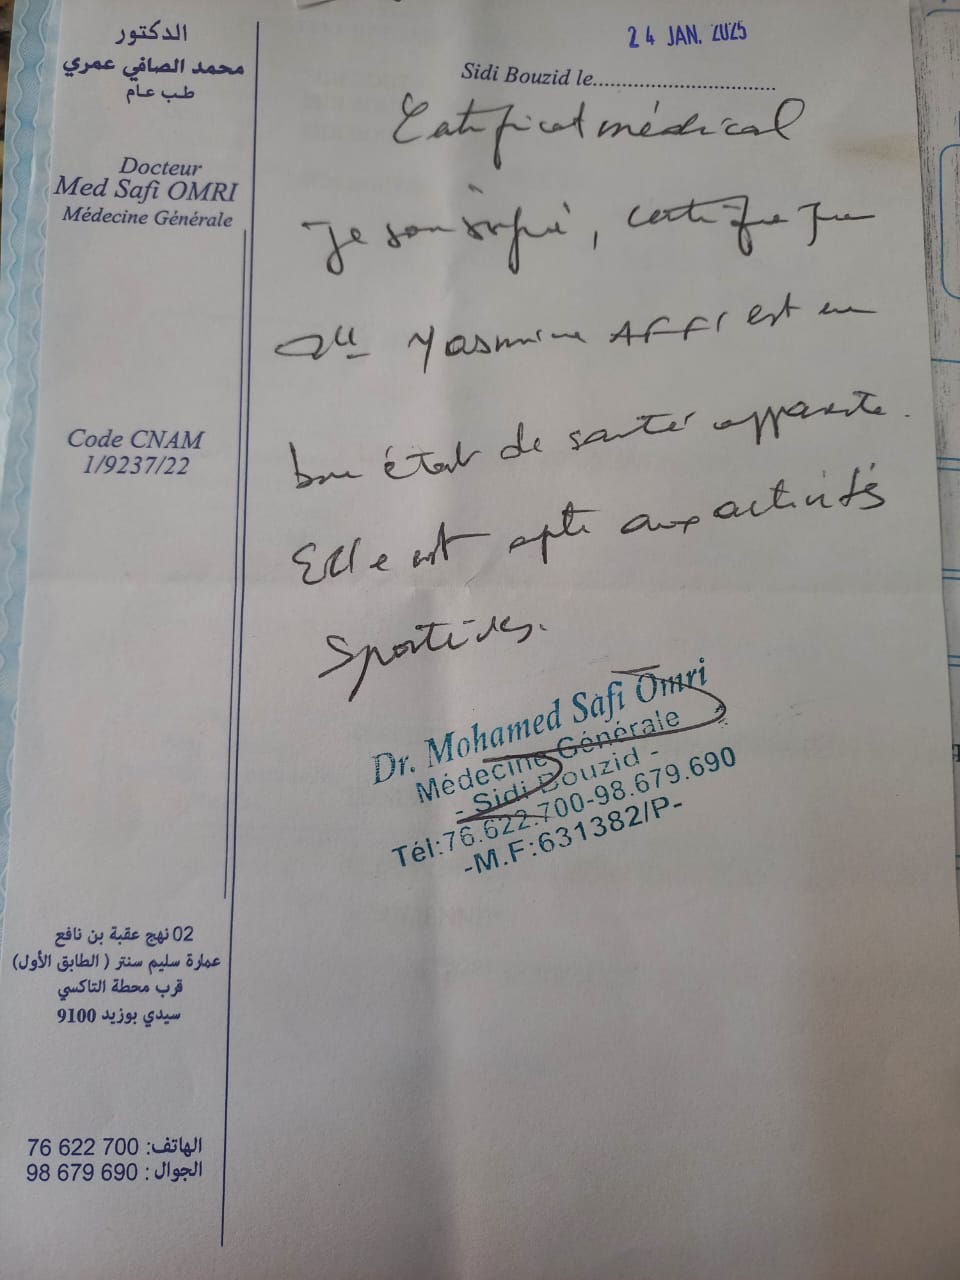 الدكتور
محمد الصافي عمري
طب عام
Docteur
Med Safi OMRI
Médecine Générale
Code CNAM
1/9237/22
24 JAN. 2025
Sidi Bouzid le...............................
Certificat médical
Je soussigné, certifie que
Mlle Yasmine AFFI est en
bon état de santé apparente.
Elle est apte aux activités
Sportives.
Dr. Mohamed Safi Omri
Médecine Générale
- Sidi Bouzid -
Tél:76.622.700-98.679.690
-M.F:631382/P-
02 نهج عقبة بن نافع
عمارة سليم سنتر ( الطابق الأول)
قرب محطة التاكسي
سيدي بوزيد 9100
الهاتف: 700 622 76
الجوال : 690 679 98